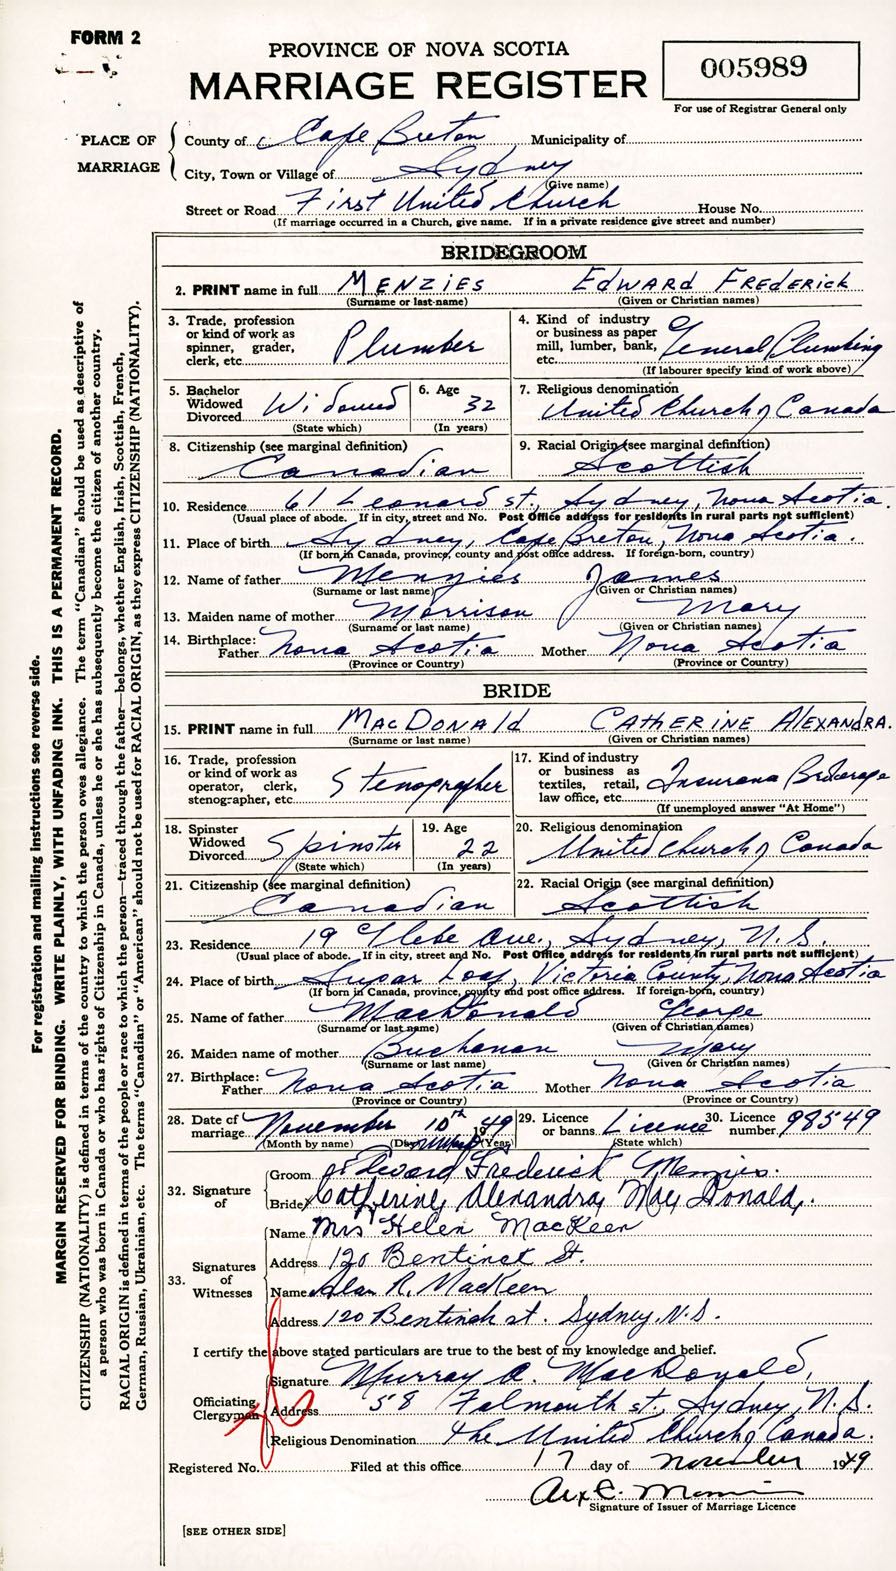 FORM 2
PROVINCE OF NOVA SCOTIA
MARRIAGE REGISTER
005989
For use of Registrar General only
PLACE OF MARRIAGE
County of Cape Breton Municipality of
City, Town or Village of Sydney
(Give name)
Street or Road First United Church House No.
(If marriage occurred in a Church, give name. If in a private residence give street and number)
BRIDEGROOM
2. PRINT name in full MENZIES EDWARD FREDERICK
(Surname or last name) (Given or Christian names)
3. Trade, profession or kind of work as spinner, grader, clerk, etc. Plumber
4. Kind of industry or business as paper mill, lumber, bank, etc. General Plumbing
(If labourer specify kind of work above)
5. Bachelor Widowed Divorced Widowed
(State which)
6. Age 32
(In years)
7. Religious denomination United Church of Canada
8. Citizenship (see marginal definition) Canadian
9. Racial Origin (see marginal definition) Scottish
10. Residence 61 Leonard st., Sydney, Nova Scotia.
(Usual place of abode. If in city, street and No. Post Office address for residents in rural parts not sufficient)
11. Place of birth Sydney, Cape Breton, Nova Scotia.
(If born in Canada, province, county and post office address. If foreign-born, country)
12. Name of father Menzies James
(Surname or last name) (Given or Christian names)
13. Maiden name of mother Morrison Mary
(Surname or last name) (Given or Christian names)
14. Birthplace: Father Nova Scotia Mother Nova Scotia
(Province or Country) (Province or Country)
BRIDE
15. PRINT name in full MACDONALD CATHERINE ALEXANDRA.
(Surname or last name) (Given or Christian names)
16. Trade, profession or kind of work as operator, clerk, stenographer, etc. Stenographer
17. Kind of industry or business as textiles, retail, law office, etc. Insurance Brokerage
(If unemployed answer "At Home")
18. Spinster Widowed Divorced Spinster
(State which)
19. Age 22
(In years)
20. Religious denomination United Church of Canada
21. Citizenship (see marginal definition) Canadian
22. Racial Origin (see marginal definition) Scottish
23. Residence 19 Glebe Ave., Sydney, N.S.
(Usual place of abode. If in city, street and No. Post Office address for residents in rural parts not sufficient)
24. Place of birth Sugar Loaf, Victoria County, Nova Scotia
(If born in Canada, province, county and post office address. If foreign-born, country)
25. Name of father MacDonald George
(Surname or last name) (Given of Christian names)
26. Maiden name of mother Buchanan Mary
(Surname or last name) (Given or Christian names)
27. Birthplace: Father Nova Scotia Mother Nova Scotia
(Province or Country) (Province or Country)
28. Date of marriage November 10th 1949
(Month by name) (Day) (Year)
29. Licence or banns Licence
(State which)
30. Licence number 98549
32. Signature of
Groom Edward Frederick Menzies.
Bride Catherine Alexandra MacDonald.
33. Signatures of Witnesses
Name Mrs Helen MacKeen
Address 120 Bentinck St.
Name Alan R. MacKeen
Address 120 Bentinck st. Sydney, N.S.
I certify the above stated particulars are true to the best of my knowledge and belief.
Officiating Clergyman
Signature Murray A. MacDonald,
Address 58 Falmouth st., Sydney, N.S.
Religious Denomination The United Church of Canada.
Registered No. Filed at this office 17 day of November 1949
Signature of Issuer of Marriage Licence
[SEE OTHER SIDE]
For registration and mailing instructions see reverse side.
MARGIN RESERVED FOR BINDING. WRITE PLAINLY, WITH UNFADING INK. THIS IS A PERMANENT RECORD.
CITIZENSHIP (NATIONALITY) is defined in terms of the country to which the person owes allegiance. The term "Canadian" should be used as descriptive of
a person who was born in Canada or who has rights of Citizenship in Canada, unless he or she has subsequently become the citizen of another country.
RACIAL ORIGIN is defined in terms of the people or race to which the person—traced through the father—belongs, whether English, Irish, Scottish, French,
German, Russian, Ukrainian, etc. The terms "Canadian" or "American" should not be used for RACIAL ORIGIN, as they express CITIZENSHIP (NATIONALITY).